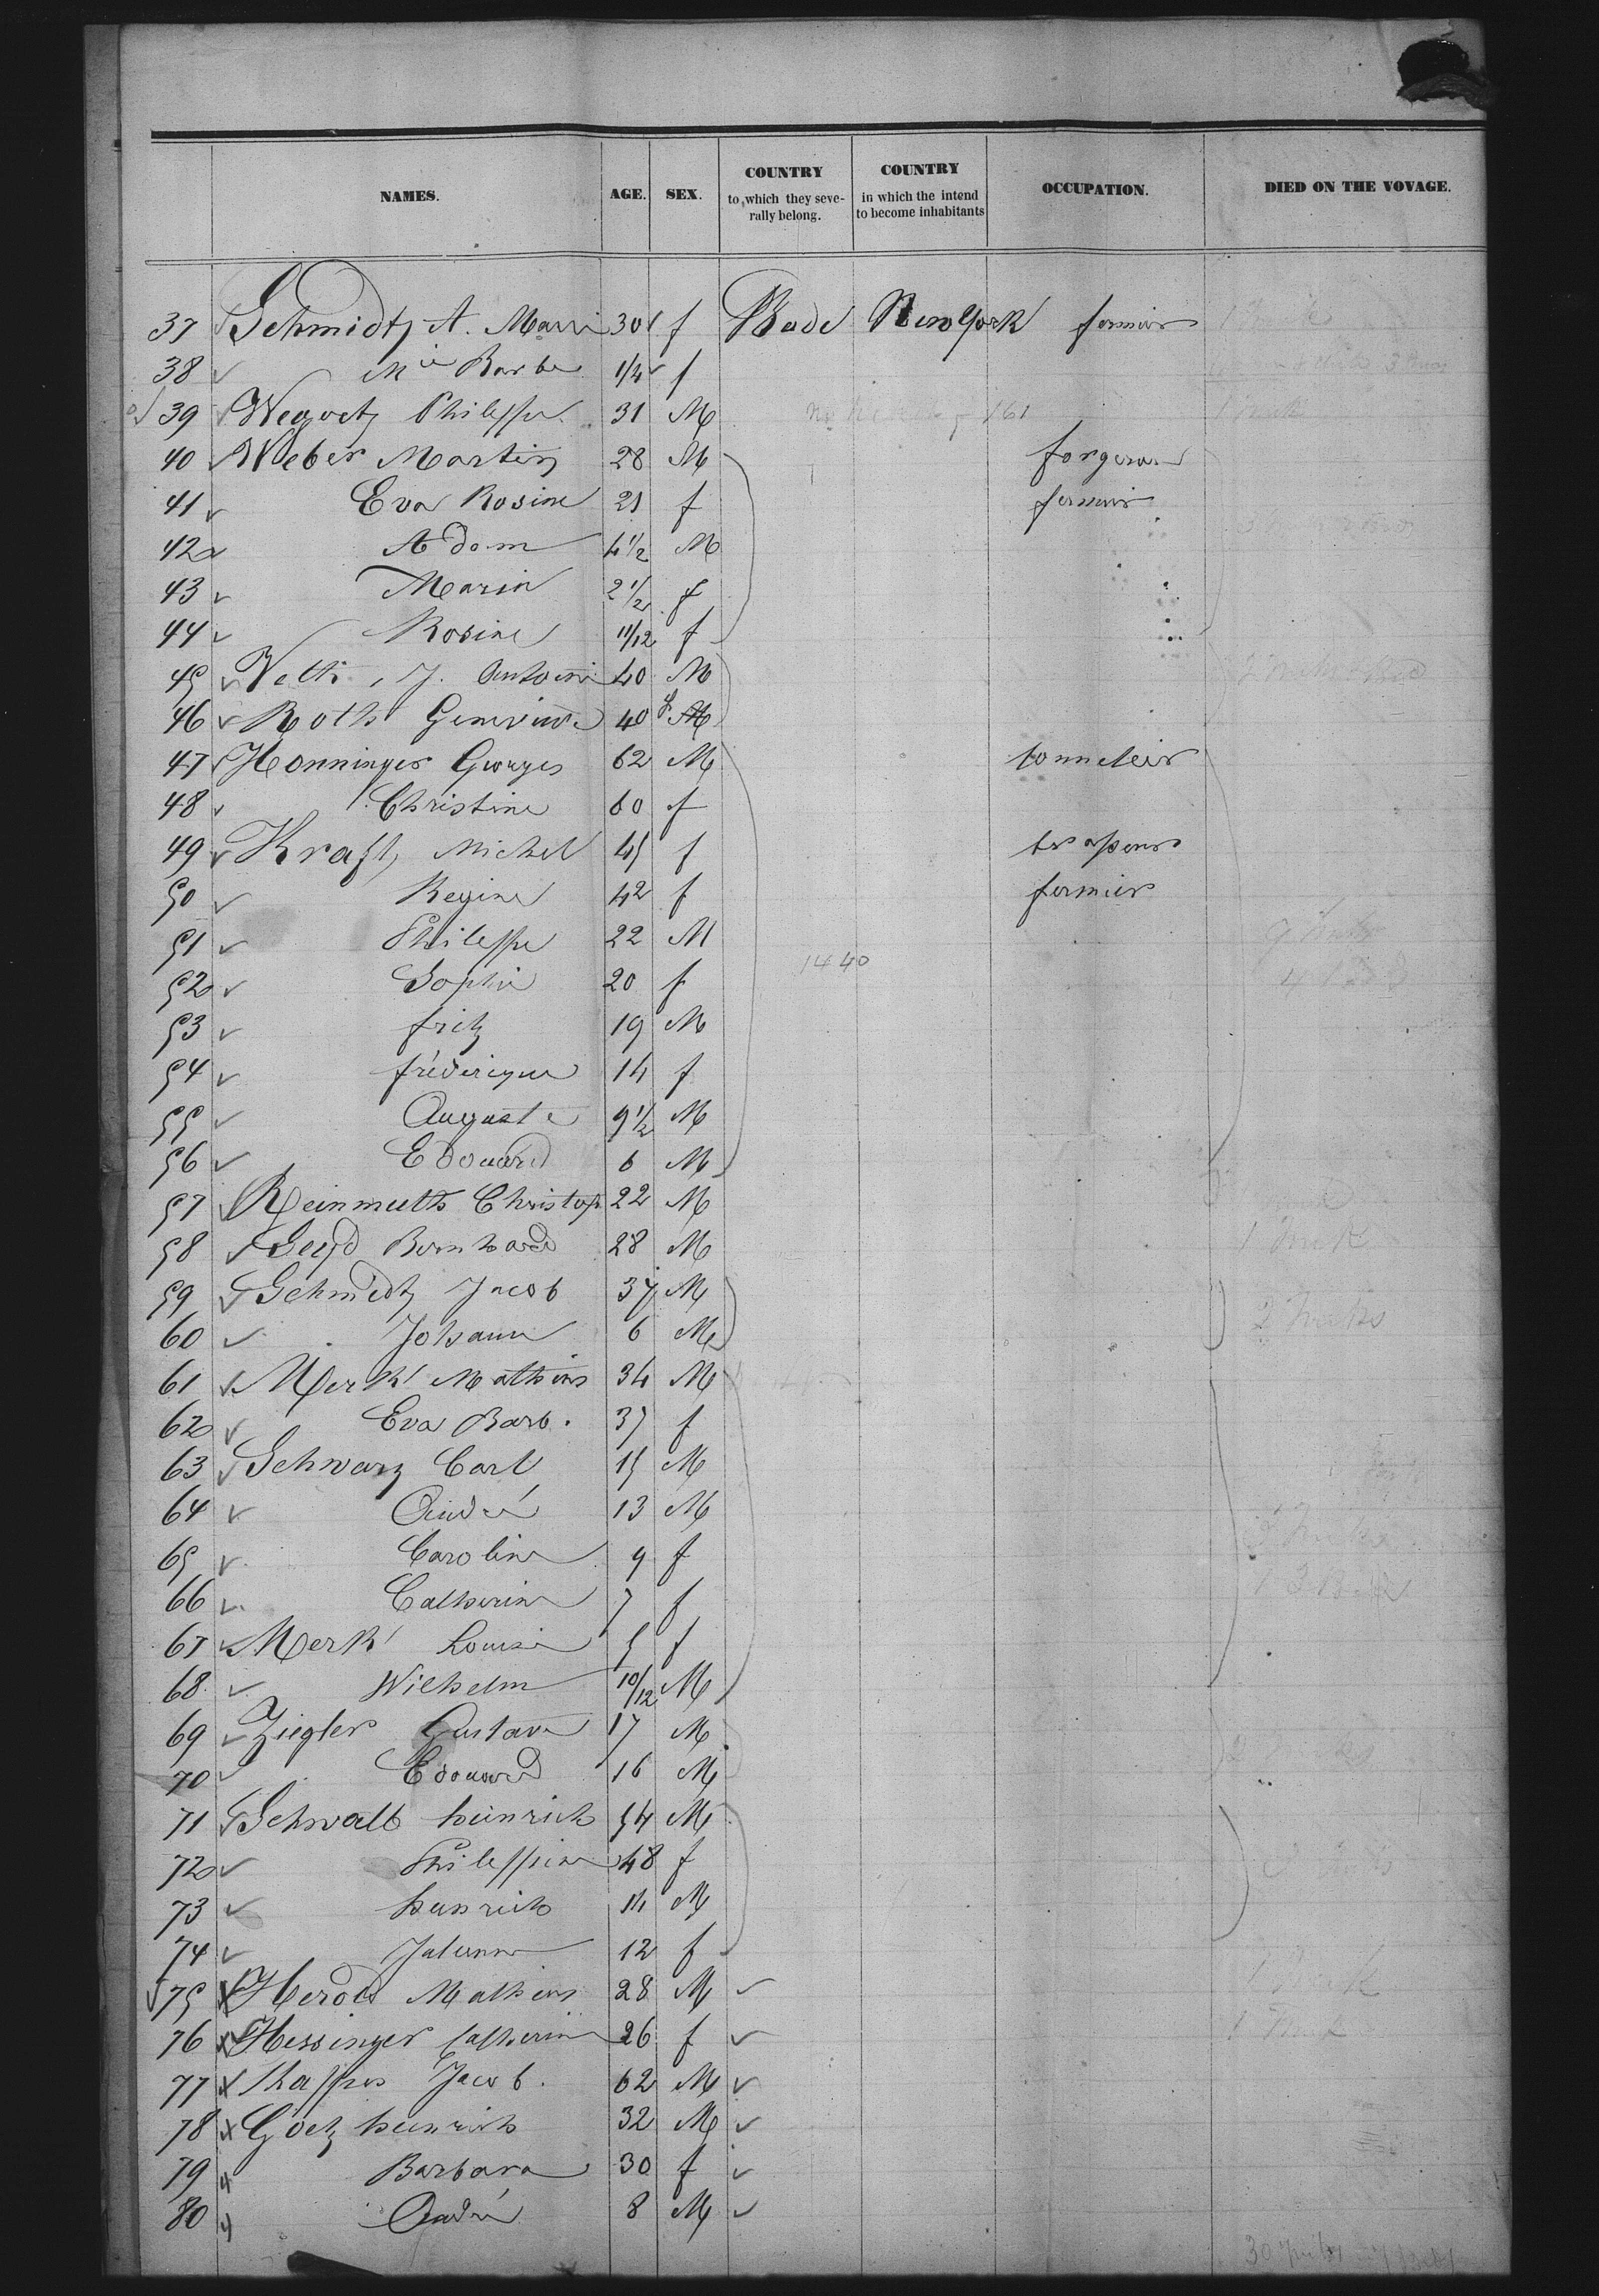 NAMES. AGE. SEX. COUNTRY to which they severally belong. COUNTRY in which the intend to become inhabitants OCCUPATION. DIED ON THE VOYAGE.
37 Schmidt, A. Marri 30 f Bade New York fermier
38 Mie Barbe 1/4 f
39 Philippe 31 M 161
40 Weber Martin 28 M forgeron
41 Eva Rosine 21 f fermier
42 Adam 4 1/2 M
43 Maria 2 1/2 f
44 Rosine 11/12 f
45 Veth, J. Antoine 40 M
46 Roth Genevieve 40 f M
47 Honninger Georges 62 M tonnelier
48 Christine 60 f
49 Kraft, Michel 45 f
50 Regine 42 f fermier
51 Philippe 22 M
52 Sophie 20 f
1440
53 fritz 19 M
54 fréderique 14 f
55 Auguste 9 1/2 M
56 Edouard 6 M
57 Reinmuth Christop 22 M
58 Bernhard 28 M
59 Schmidt, Jacob 37 M
60 Johann 6 M
61 Merk Mathias 34 M
62 Eva Barb. 37 f
63 Schwarz Carl 15 M
64 André 13 M
65 Caroline 9 f
66 Catherine 7 f
67 Merk Louise 5 f
68 Wilhelm 10/12 M
69 Ziegler Gustave 17 M
70 Edouard 16 M
71 Schwalb heinrich 54 M
72 Philippine 48 f
73 heinrich 14 M
74 12 f
75 Herold Mathias 28 M
76 Hessinger Catherine 26 f
77 Jacob. 62 M
78 Götz heinrich 32 M
79 Barbara 30 f
80 André 8 M